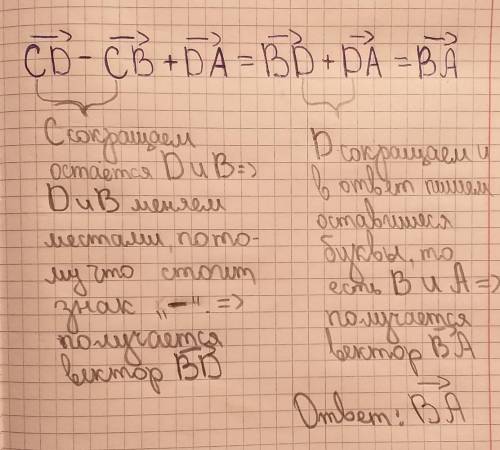 CD - CB + DA = BD + DA = BA
С сокращаем
остается D и B =>
D и B меняем
местами, пото-
му что стоит
знак „-“. =>
получается
вектор BD
D сокращаем и
в ответ пишем
оставшиеся
буквы, то
есть B и A =>
получается
вектор BA
Ответ: BA